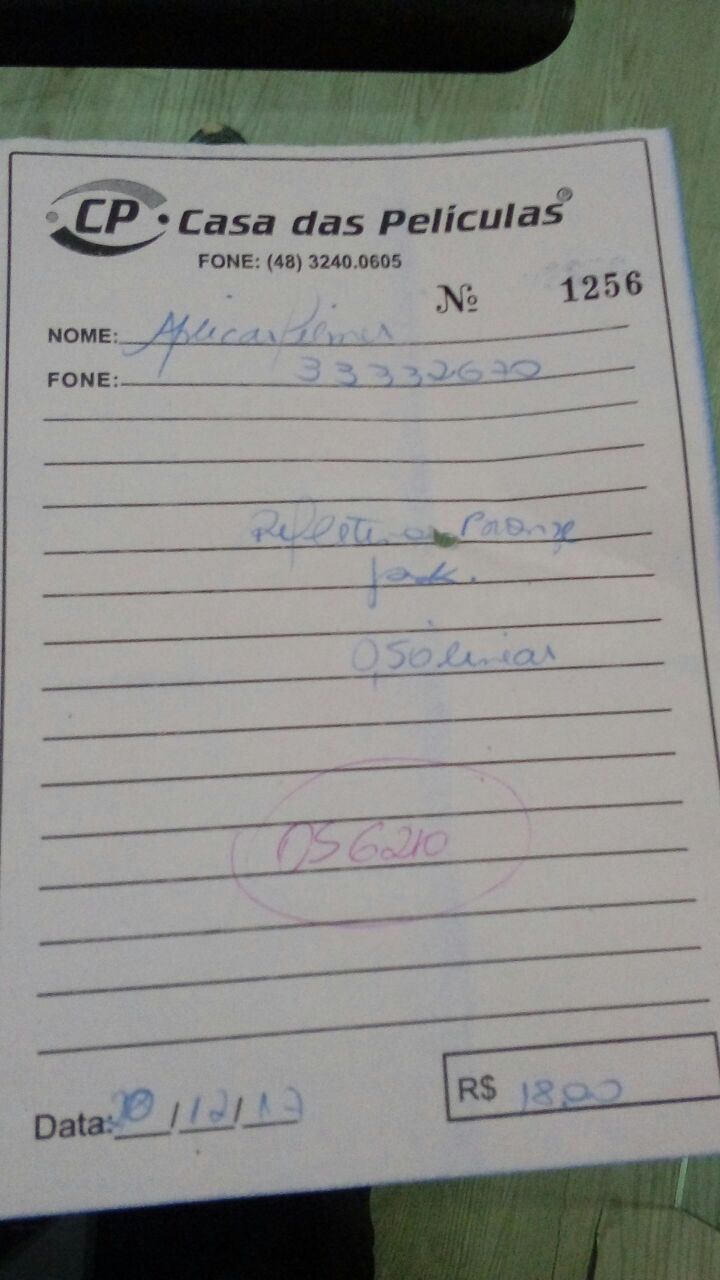 CP Casa das Películas®
FONE: (48) 3240.0605
Nº 1256
NOME: Aplicar Filmes
FONE: 33332670
Bronze
0,50 linear
OS 6210
Data: /12/17
R$ 18,00